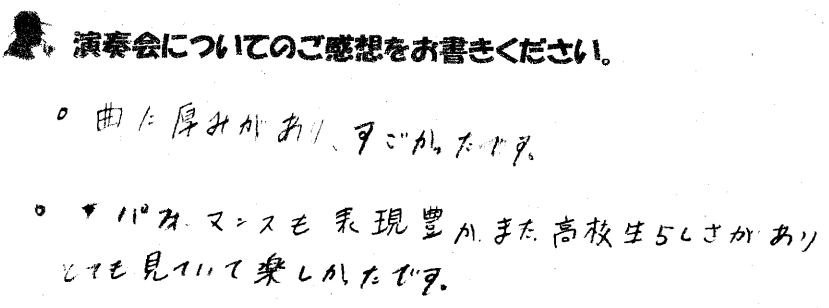 演奏会についてのご感想をお書きください。
○ 曲に厚みがあり、すごかったです。
○ パフォマンスも表現豊か、また、高校生らしさがあり
とても見ていて楽しかったです。